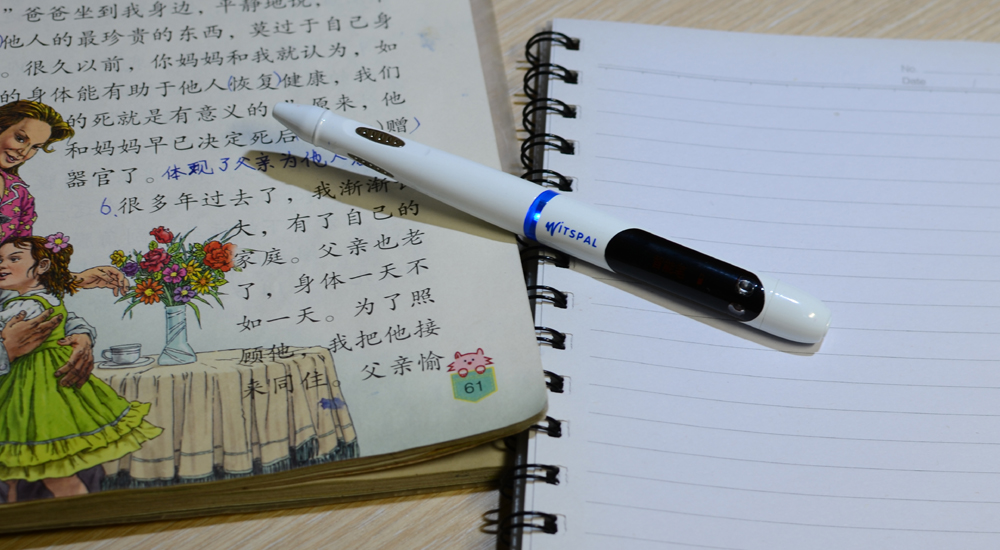 ”爸爸坐到我身边，平静地说，“
他人的最珍贵的东西，莫过于自己身
。很久以前，你妈妈和我就认为，如
的身体能有助于他人(恢复)健康，我们
的死就是有意义的。原来，他
和妈妈早已决定死后 )赠)
器官了。体现了父亲为他人
6.很多年过去了，我渐渐
大，有了自己的
家庭。父亲也老
了，身体一天不
如一天。为了照
顾他，我把他接
来同住。 父亲愉
61
WITSPAL
No
Date